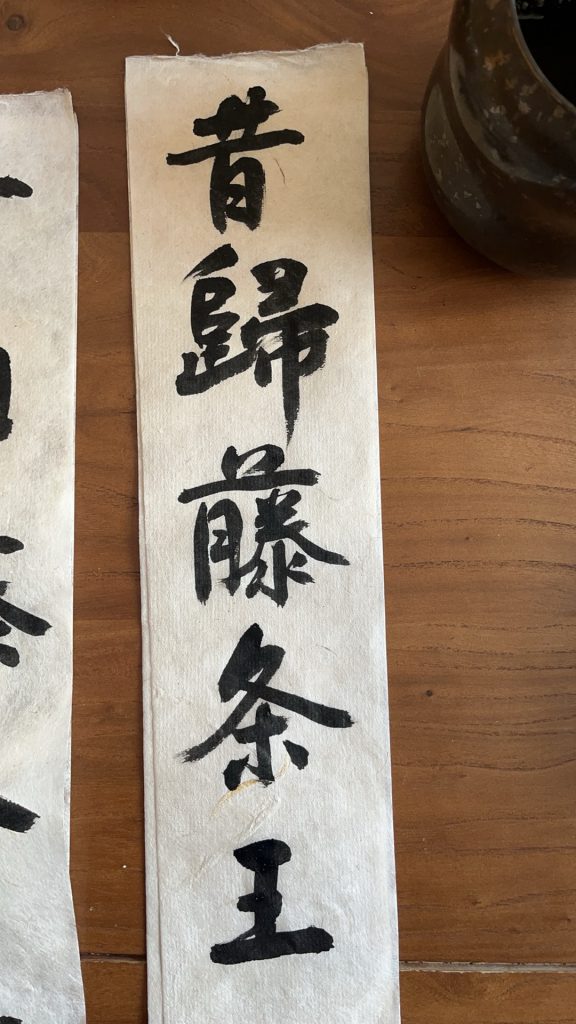 昔歸藤条王